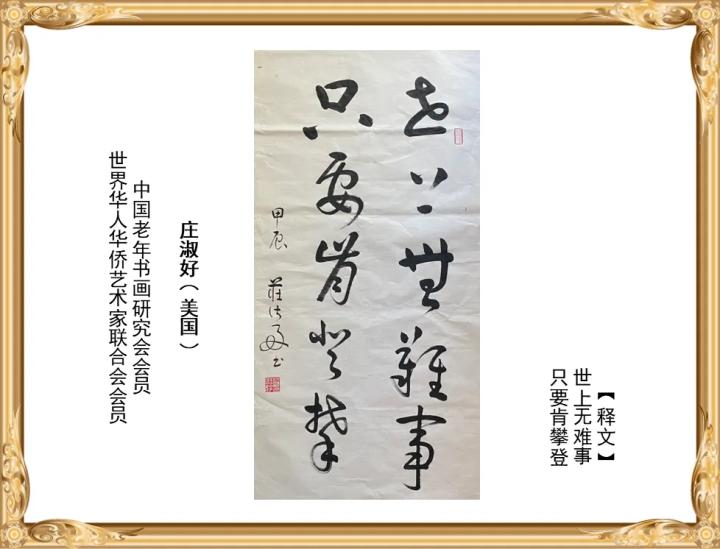 【释文】
世上无难事
只要肯攀登
世上無難事
只要肯登攀
甲辰 莊淑好书
庄淑好（美国）
中国老年书画研究会会员
世界华人华侨艺术家联合会会员